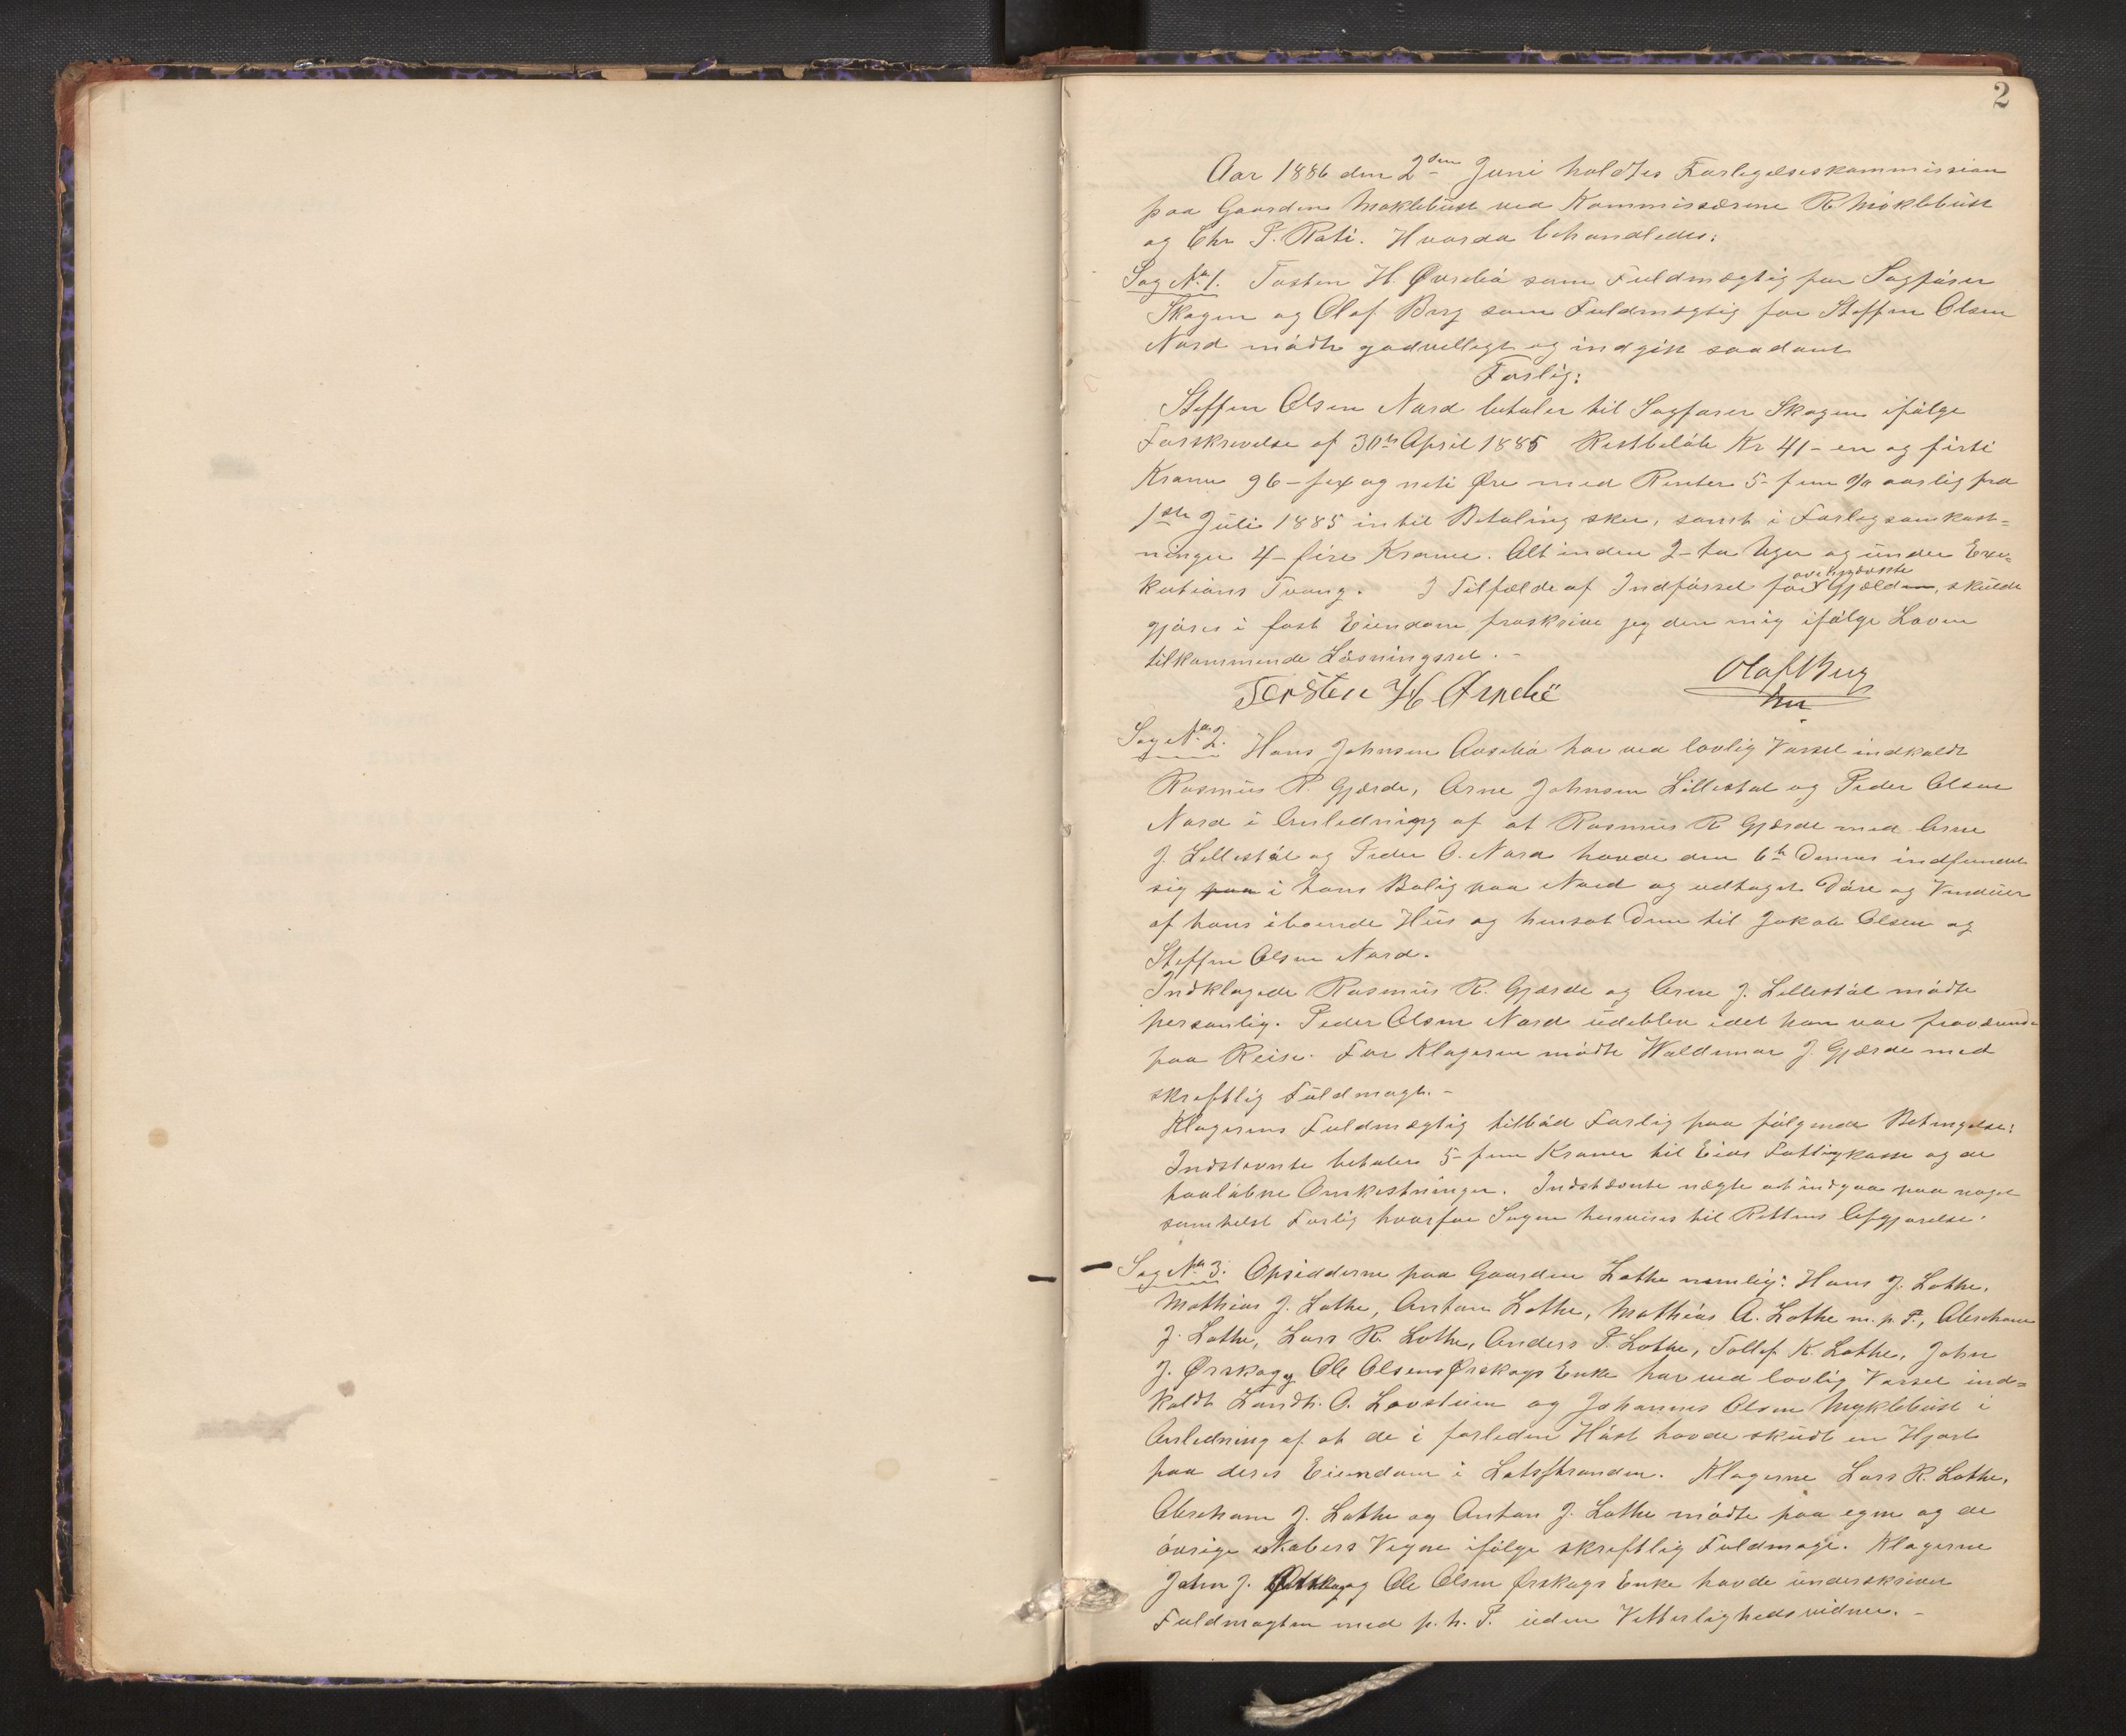 2
Aar 1886 den 2den Juni holdtes Forligelseskommission
paa Gaarden Møklebust ved Kommissærerne R. Møklebust
og Chr P. Roti. Hvorda behandledes:
Sag No 1. Tosten H. Øvrebø som Fuldmægtig for Sagfører
Skogen og Olaf Berg som Fuldmægtig for Steffen Olsen
Nord mødte godvelligt og indgik saadant
Forlig:
Steffen Olsen Nord betaler til Sagfører Skogen ifølge
Forskrevelse af 30te April 1885 Restbeløb Kr 41 - en og firti
Kroner 96 - sex og niti Øre med Renter 5 - fem % aarlig fra
1ste Juli 1885 intil Betaling sker, samt i Forligsomkost=
ninger 4 - fire Kroner. Alt inden 2 - to Uger og under Exe=
kutions Tvang. I Tilfælde af Indførsel for ovennævnte Gjæld, skulde
gjøres i fast Eiendom fraskrive jeg den mig ifølge Loven
tilkommende Løsningsret. -
Torsten H Øvrebø Olaf Berg
Sag No 2. Hans Johnsen Aasebø har ved lovlig Varsel indkaldt
Rasmus R. Gjærde, Arne Johnsen Lillestøl og Peder Olsen
Nord i Anledning af at Rasmus R Gjærde med Arne
J. Lillestøl og Peder O. Nord havde den 6te Dennes indfundet
sig paa i hans Bolig paa Nord og udtaget Døre og Vinduer
af hans iboende Hus og hensat Dem til Jakob Olsen og
Steffen Olsen Nord.
Indklagede Rasmus R. Gjærde og Arne J. Lillestøl mødte
personlig. Peder Olsen Nord udeblev idet han var fraværende
paa Reise. For Klageren mødte Waldemar J. Gjærde med
skreftlig Fuldmagt. -
Klagerens Fuldmægtig tilbød Forlig paa følgende Betingelse:
Indstevnte betaler 5 - fem Kroner til Eids Fattigkasse og de
paaløbne Omkostninger. Indstævnte nægte at indgaa paa noget
somhelst Forlig hvorfor Sagen henvises til Rettens Afgjørelse.
Sag No 3. Opsidderne paa Gaarden Lothe nemlig: Hans J. Lothe,
Mathias J. Lothe, Anton Lothe, Mathias A. Lothe m. p. P., Abraham
J. Lothe, Lars R. Lothe, Anders P. Lothe, Tollef K. Lothe, John
J. Ørskog og Ole Olsens Ørskogs Enke har ved lovlig Varsel ind=
kaldt Landh. O. Lovstuen og Johannes Olsen Myklebust i
Anledning af at de i forleden Høst havde skudt en Hjort
paa deres Eiendom i Lotsstranden. Klagerne Lars R. Lothe,
Abraham J. Lothe og Anton J. Lothe mødte paa egne og de
øvrige Vegne ifølge skreftlig Fuldmagt. Klagerne
John J. Ørskog og Ole Olsen Ørskogs Enke havde underskrevet
Fuldmagten med p. h. P. uden Vitterlighedsvidner. -